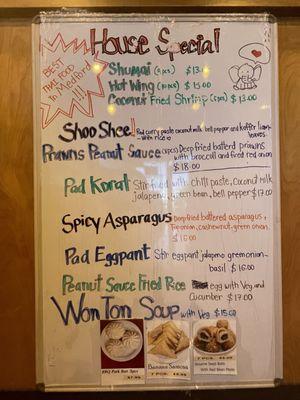 House Special
BEST
THAI FOOD
in Medford
!!!
Shumai (6pcs) $13
Hot Wing (10pcs) $15.00
Coconut Fried Shrimp (7pcs) $13.00
Shoo Shee Red curry paste coconut milk, bell pepper and kaffir lime leaves
with rice
Prawns Peanut Sauce Deep fried battered prawns
with broccoli and fried red onion
$18.00
Pad Korat Stir fried with chili paste, coconut milk
jalapeno, green bean, bell pepper $17.00
Spicy Asparagus Deep fried battered asparagus,
onion, cashewnut, green onion
$16.00
Pad Eggpant Stir eggpant jalapeno green onion
basil $16.00
Peanut Sauce Fried Rice egg with Veg and
Cucumber $17.00
Won Ton Soup with Veg $15.00
BBQ Pork Bun
Banana Samosa
Sesame Seed Balls
With Red Bean Paste